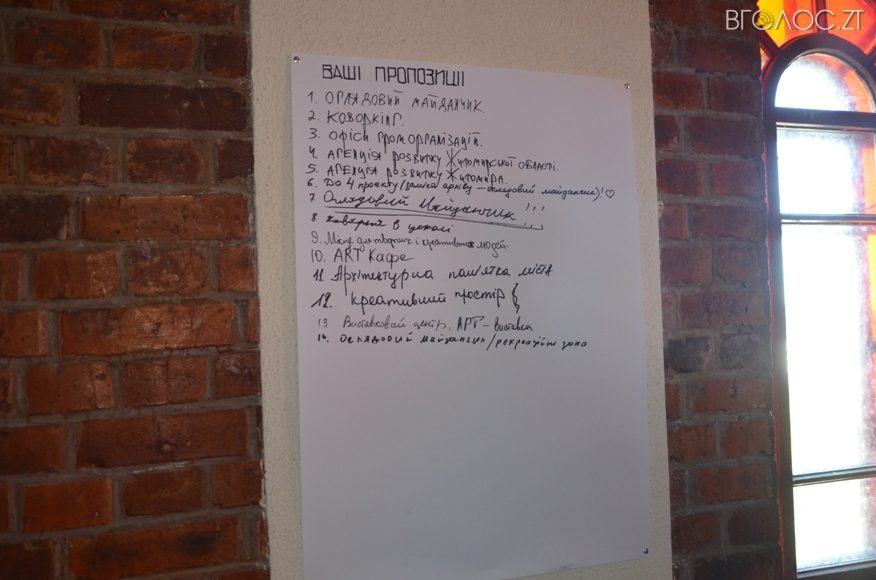 ВГОЛОС.ZT
ВАШІ ПРОПОЗИЦІЇ
1. ОГЛЯДОВИЙ МАЙДАНЧИК.
2. КОВОРКІНГ.
3. ОФІСИ ГРОМ.ОРГАНІЗАЦІЙ.
4. АГЕНЦІЯ РОЗВИТКУ ЖИТОМИРСЬКОЇ ОБЛАСТІ.
5. АГЕНЦІЯ РОЗВИТКУ ЖИТОМИРА.
6. До 4 проекту (замість архіву – оглядовий майданчик)!♡
7. Оглядовий Майданчик!!!
8. в цоколі
9. Місце для творчих і креативних людей.
10. ART Кафе
11. Архітектурна пам'ятка міста
12. Креативний простір
13 Виставковий центр, АРТ-виставка
14. Оглядовий майданчик/рекреаційна зона